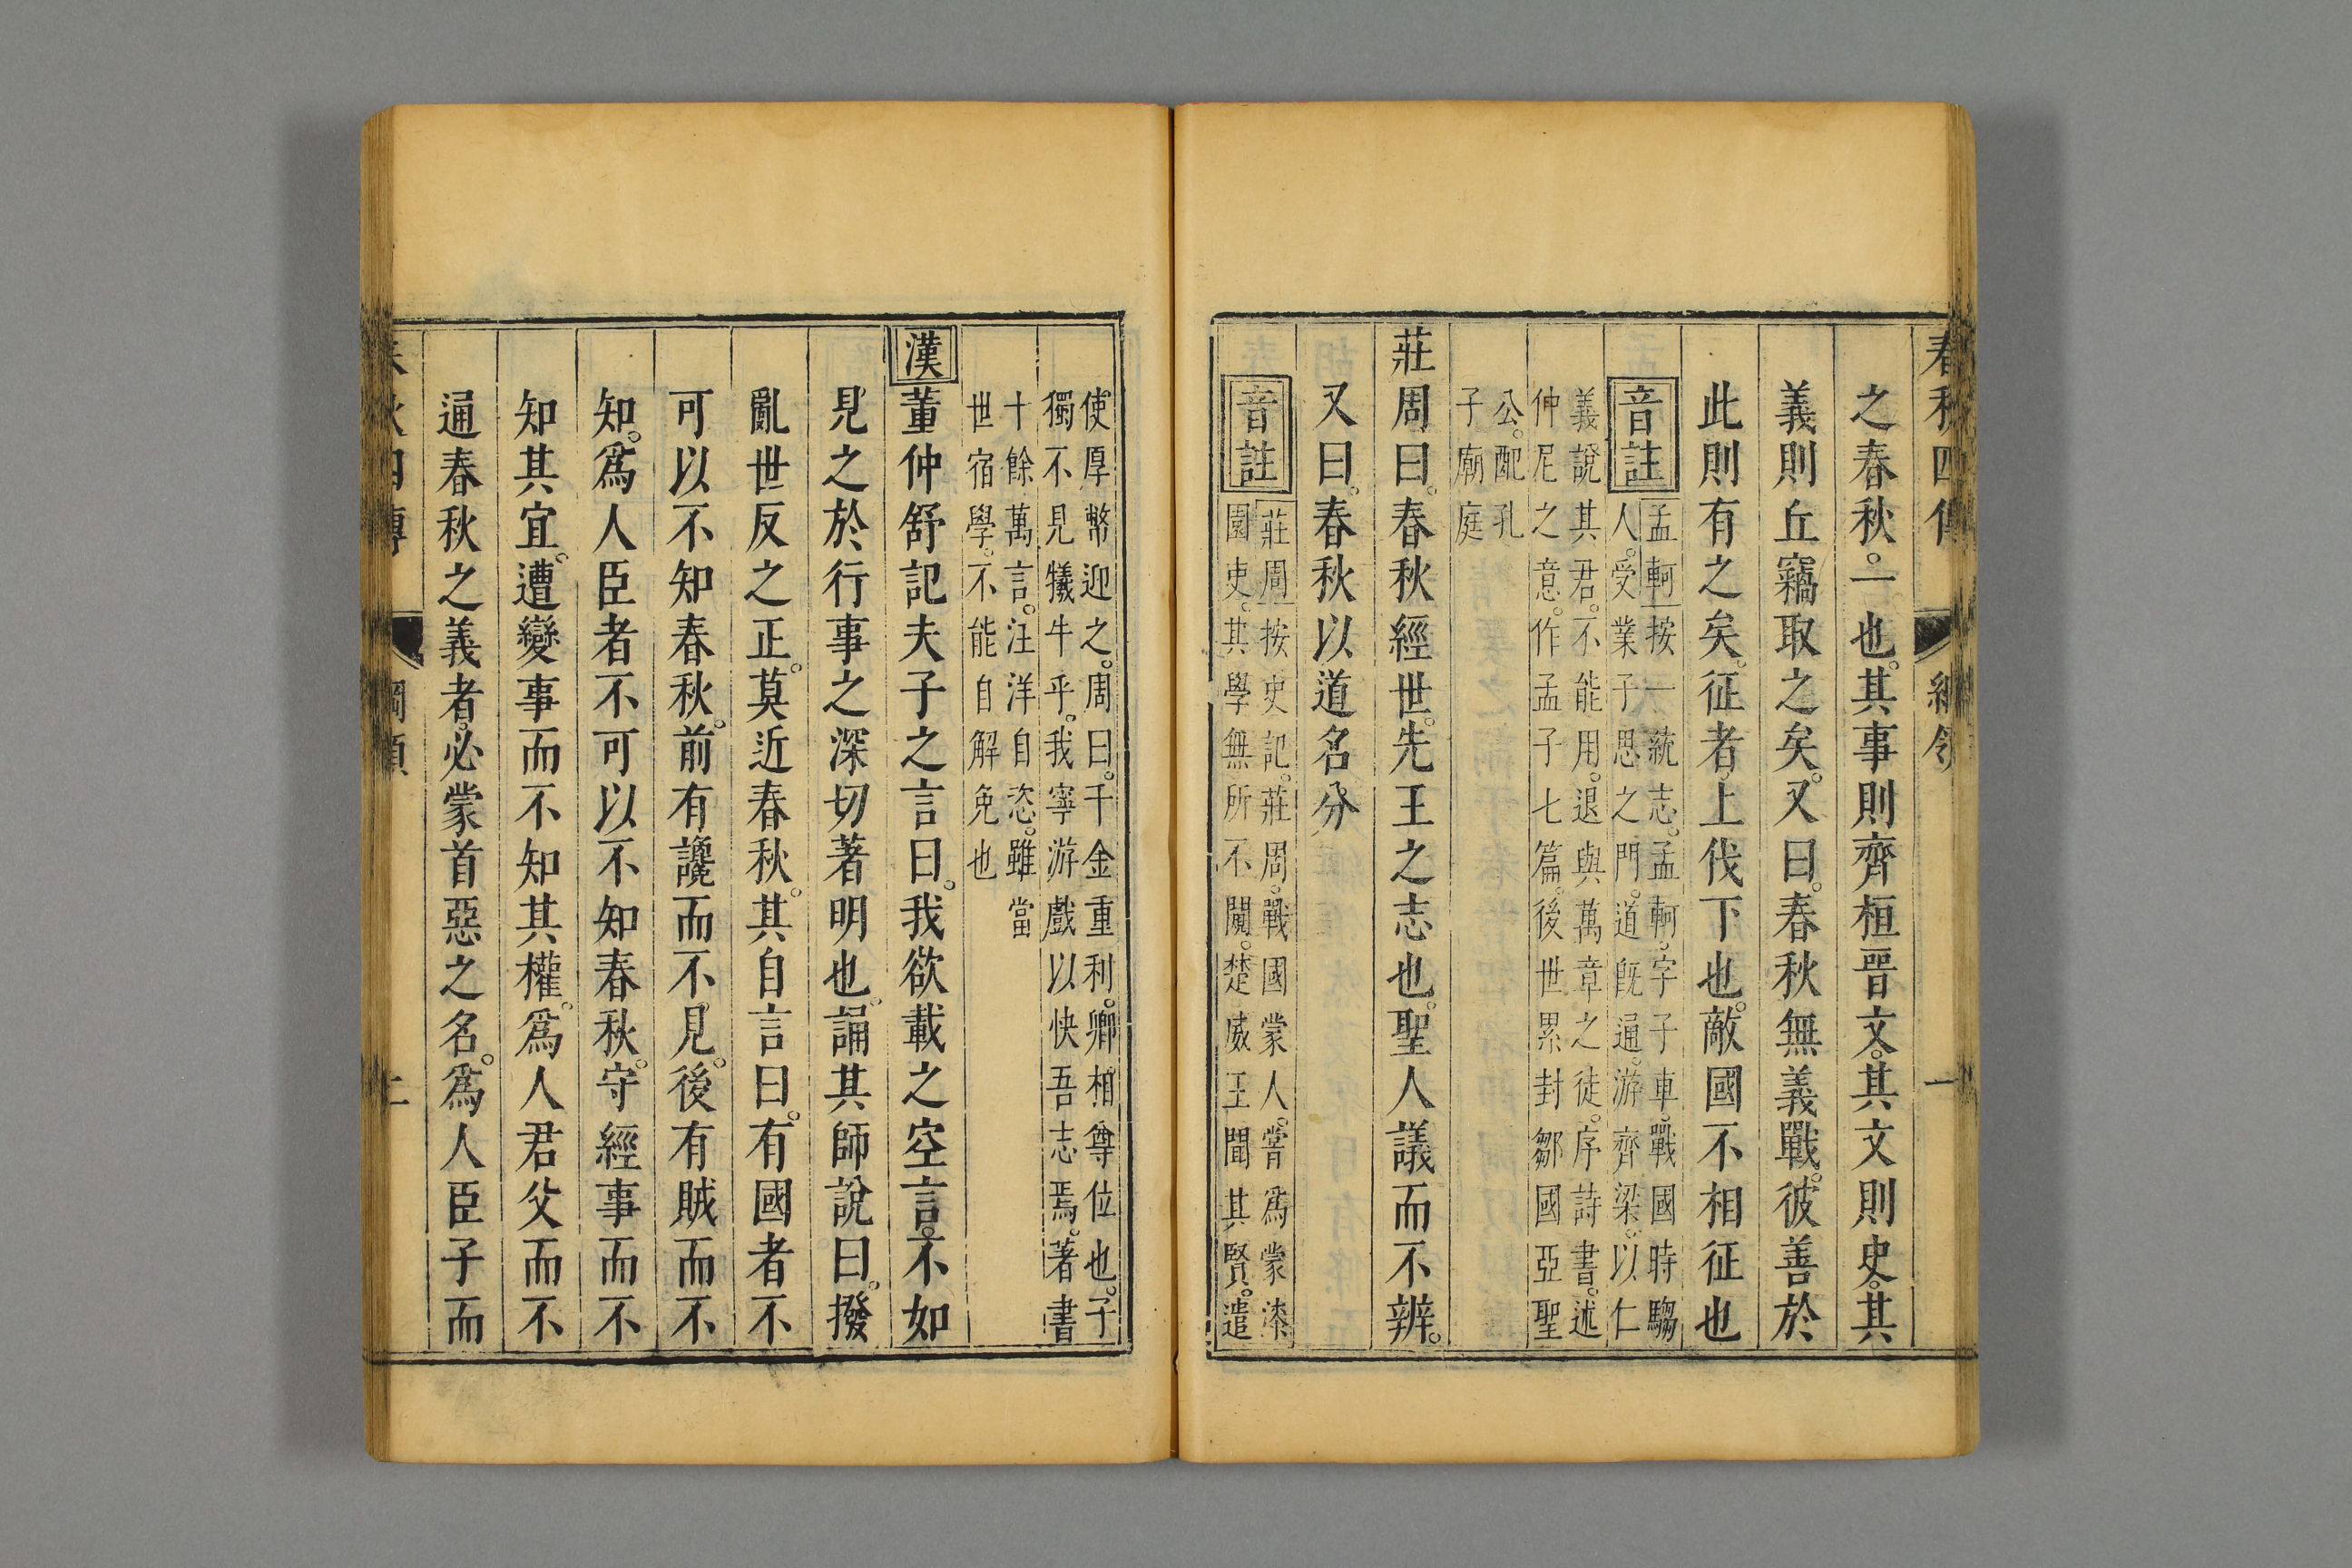 春秋四傳 綱領 一
之春秋。一也。其事則齊桓晉文。其文則史。其
義則丘竊取之矣。又曰。春秋無義戰。彼善於
此則有之矣。征者。上伐下也。敵國不相征也
音註
孟軻按一統志。孟軻。字子車。戰國時騶
人。受業子思之門。道旣通。游齊梁。以仁
義說其君。不能用。退與萬章之徒。序詩書。述
仲尼之意。作孟子七篇。後世累封鄒國亞聖
公。配孔
子廟庭
莊周曰。春秋經世。先王之志也。聖人議而不辨。
又曰。春秋以道名分
音註
莊周按史記。莊周。戰國蒙人。嘗爲蒙漆
園吏。其學無所不闚。楚威王聞其賢。遣
使厚幣迎之。周曰。千金重利。卿相尊位也。子
獨不見犧牛乎。我寧游戲以快吾志焉。著書
十餘萬言。汪洋自恣。雖當
世宿學。不能自解免也
漢董仲舒記夫子之言曰。我欲載之空言。不如
見之於行事之深切著明也。誦其師說曰。撥
亂世反之正。莫近春秋。其自言曰。有國者不
可以不知春秋。前有讒而不見。後有賊而不
知。爲人臣者不可以不知春秋。守經事而不
知其宜。遭變事而不知其權。爲人君父而不
通春秋之義者。必蒙首惡之名。爲人臣子而
秋四傳 綱領 二